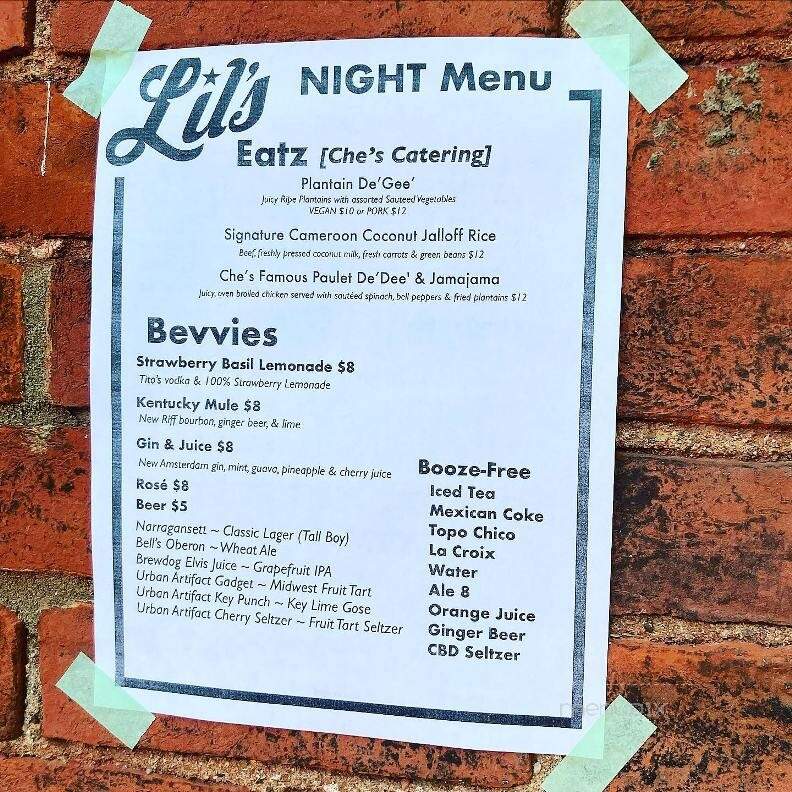 Lil's NIGHT Menu
Eatz [Che's Catering]
Plantain De'Gee'
Juicy Ripe Plantains with assorted Sauteed Vegetables
VEGAN $10 or PORK $12
Signature Cameroon Coconut Jalloff Rice
Beef, freshly pressed coconut milk, fresh carrots & green beans $12
Che's Famous Paulet De'Dee' & Jamajama
Juicy, oven broiled chicken served with sautéed spinach, bell peppers & fried plantains $12
Bevvies
Strawberry Basil Lemonade $8
Tito's vodka & 100% Strawberry Lemonade
Kentucky Mule $8
New Riff bourbon, ginger beer, & lime
Gin & Juice $8
New Amsterdam gin, mint, guava, pineapple & cherry juice
Rosé $8
Beer $5
Narragansett ~ Classic Lager (Tall Boy)
Bell's Oberon ~ Wheat Ale
Brewdog Elvis Juice ~ Grapefruit IPA
Urban Artifact Gadget ~ Midwest Fruit Tart
Urban Artifact Key Punch ~ Key Lime Gose
Urban Artifact Cherry Seltzer ~ Fruit Tart Seltzer
Booze-Free
Iced Tea
Mexican Coke
Topo Chico
La Croix
Water
Ale 8
Orange Juice
Ginger Beer
CBD Seltzer